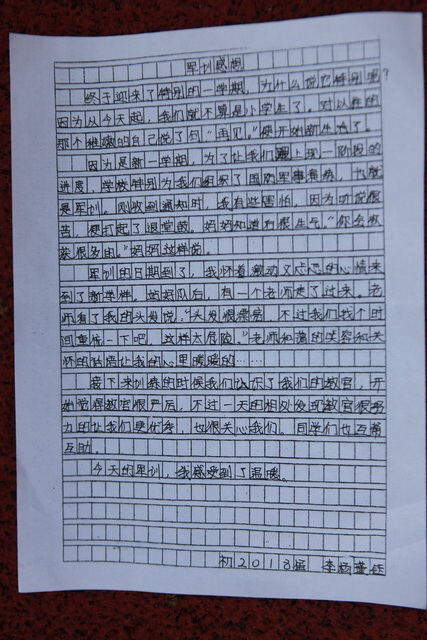 军训感想
终于迎来了特别的一学期，为什么说它特别呢？
因为从今天起，我们就不算是小学生了。对以往的
那个稚嫩的自己说了句“再见。”便开始新生活了。
因为是新一学期，为了让我们跟上现一阶段的
进度，学校特别为我们组织了国防军事集训，也就
是军训。刚收到通知时，我有些害怕，因为听说很
苦，便打起了退堂鼓。妈妈知道后很生气。“你会收
获很多的。”妈妈这样说。
军训的日期到了，我怀着激动又忐忑的心情来
到了新学样。站好队后，有一个老师走了过来。老
师看了我的头发说：“头发很漂亮，不过我们找个时
间重梳一下吧，这样太危险。”老师和蔼的笑容和关
怀的话语让我的心里暖暖的……
接下来训练的时候我们认识了我们的教官，开
始觉得教官很严厉，不过一天的相处发现教官很努
力的让我们更优秀，也很关心我们。同学们也互帮
互助。
今天的军训，我感受到了温暖。
初2018届 李杨